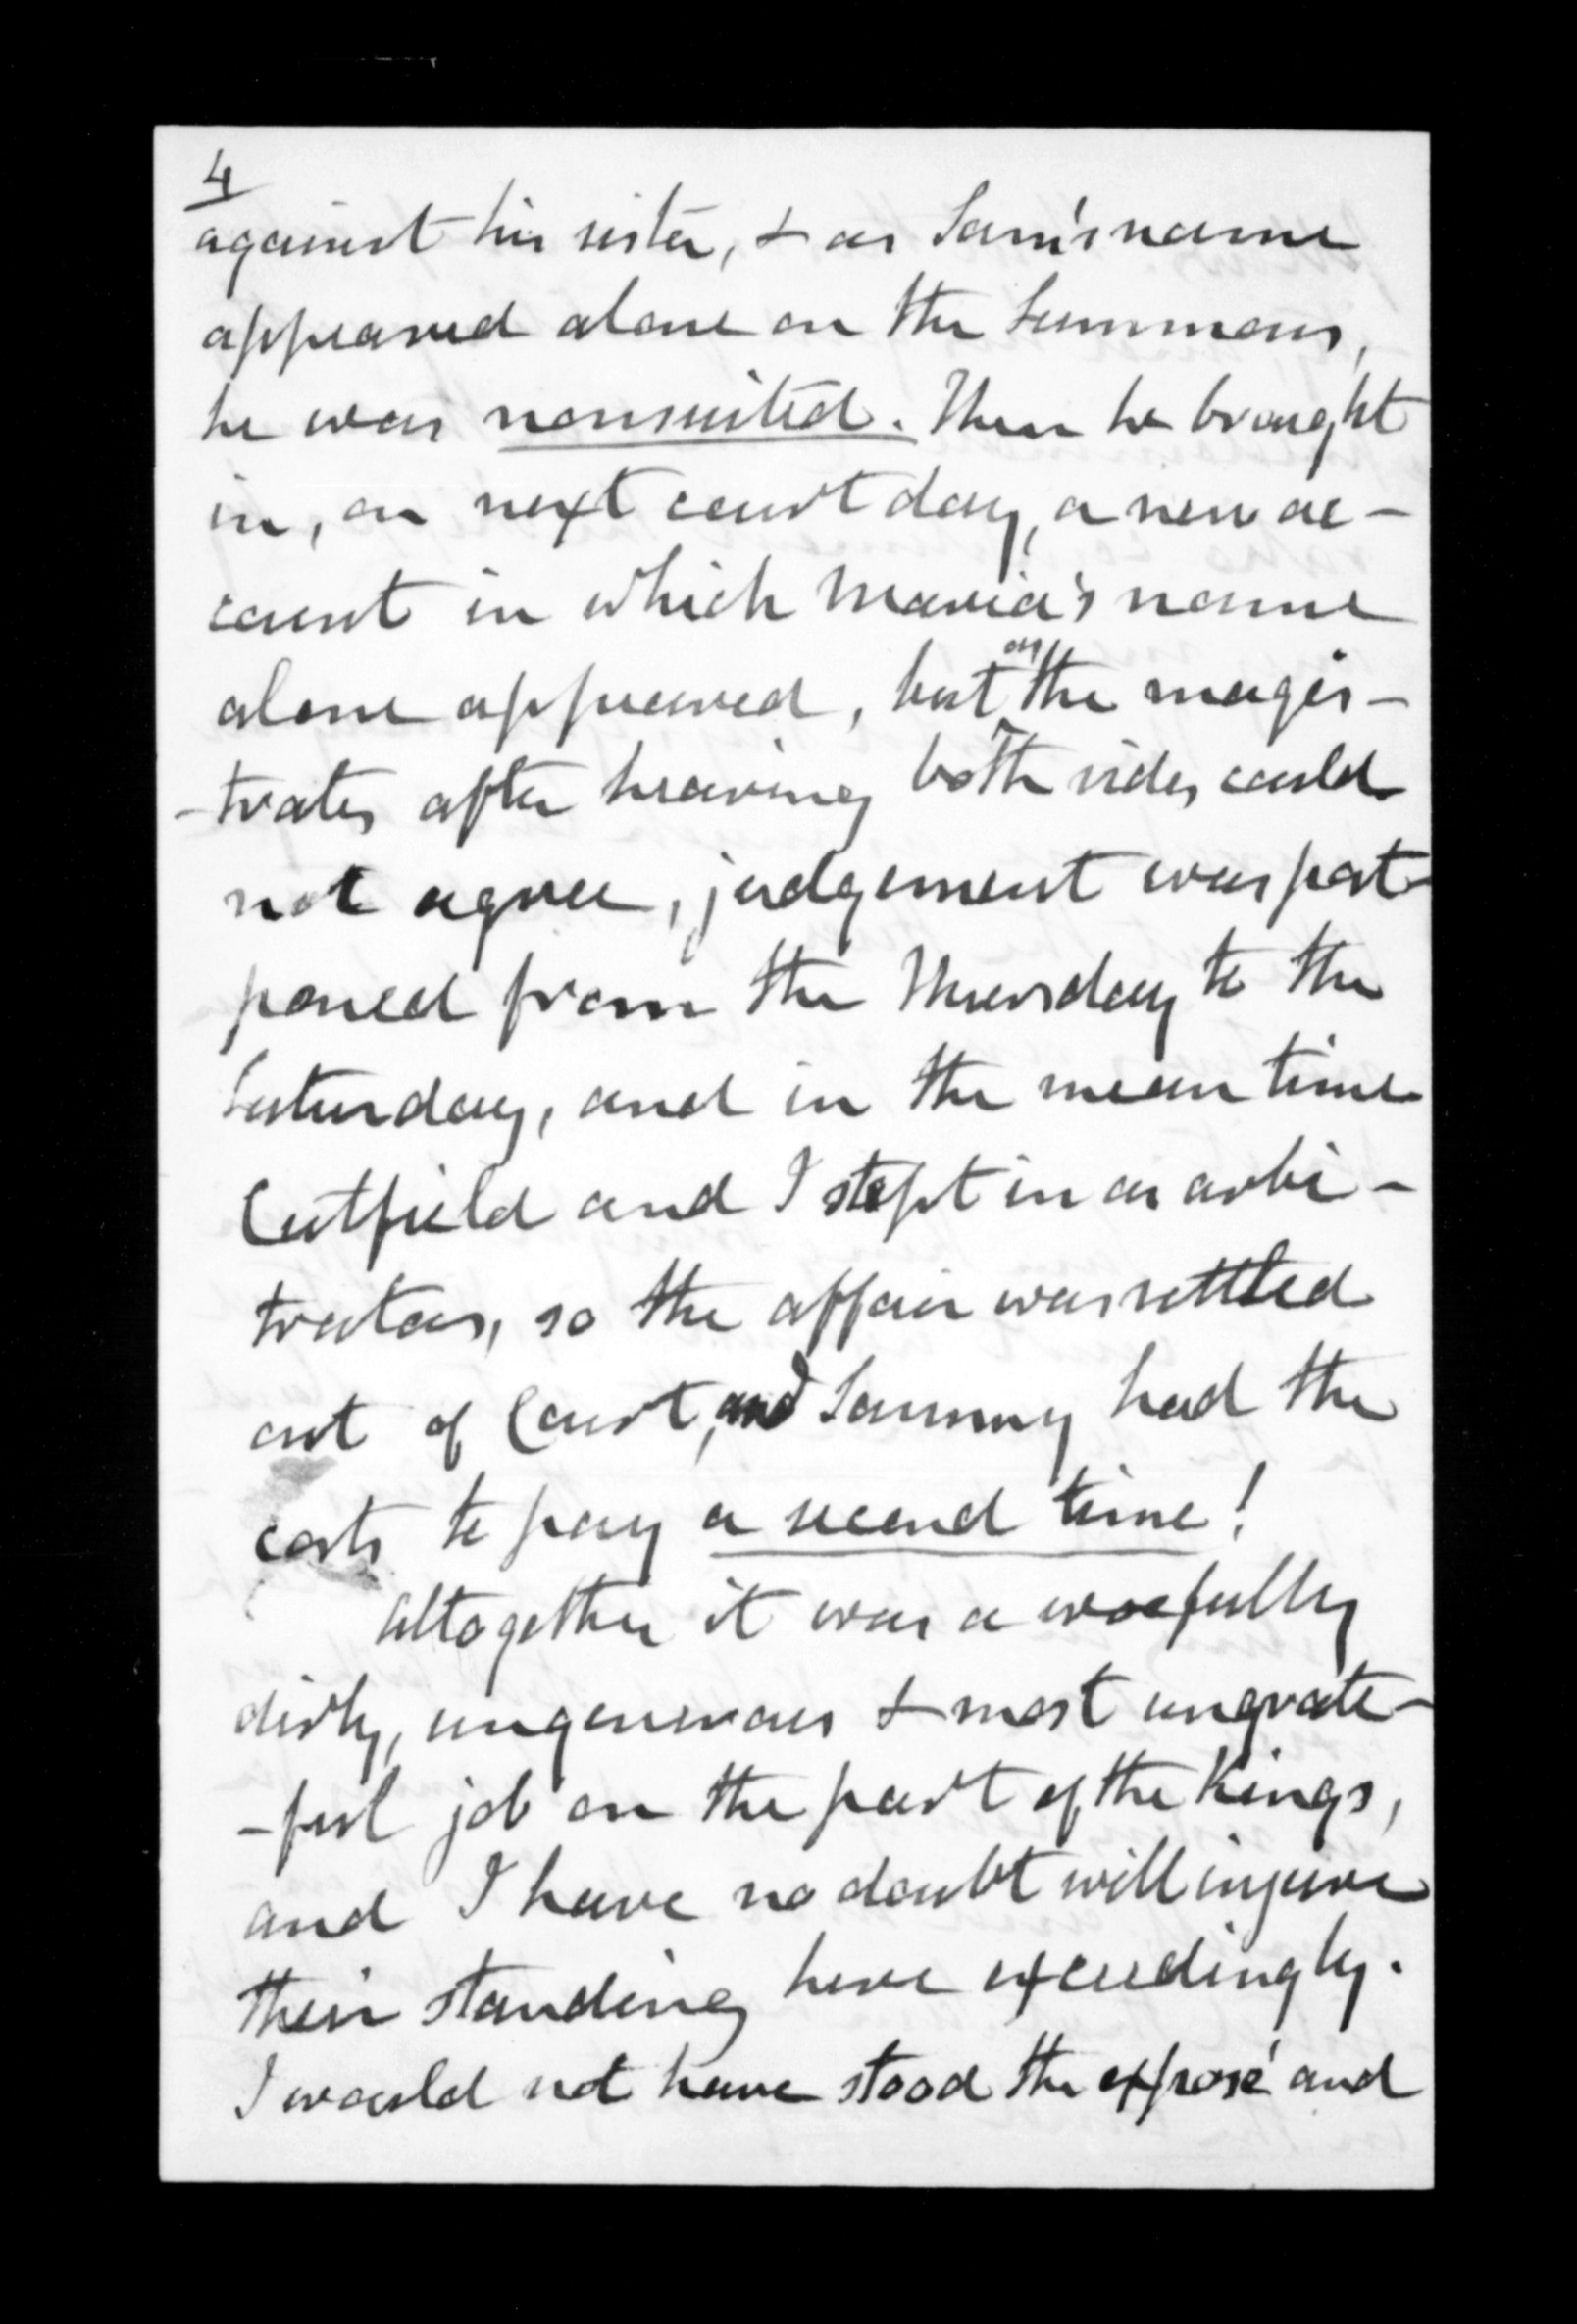 4
against his sister, & as Sam's name
appeared alone on the Summons,
he was nonsuited. Then he brought
in, on next court day, a new ac-
count in which Maria's name
alone appeared, but as the magis-
-trates after hearing both sides could
not agree, judgement was post-
poned from the Thursday to the
Saturday, and in the mean time
Cutfield and I stept in as arbi-
trators, so the affair was settled
out of Court, and Sammy had the
costs to pay a second time!
Altogether it was a woefully
dirty, ungenerous & most ungrate-
-ful job on the part of the Kings,
and I have no doubt will injure
their standing here exceedingly.
I would not have stood the exposé and